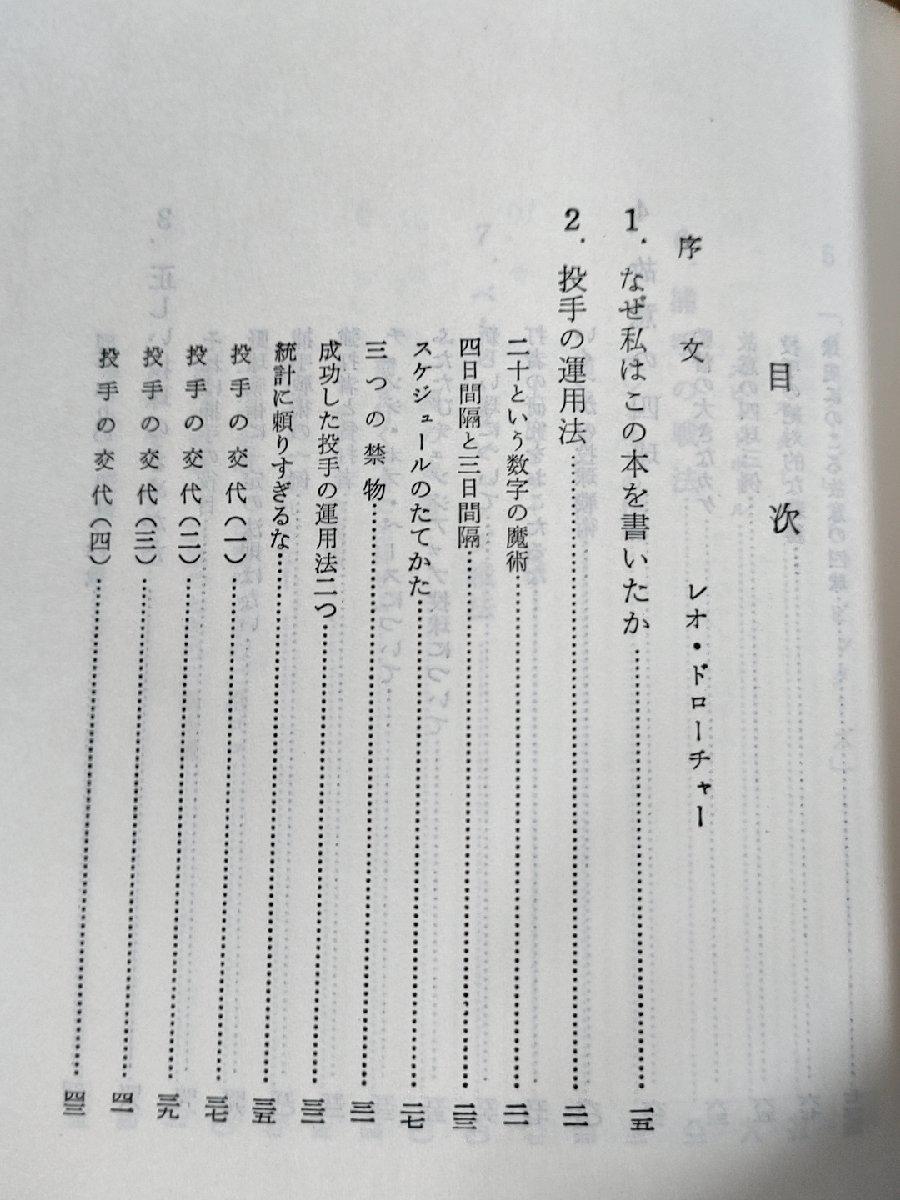 目次
序文 レオ・ドローチャー
1. なぜ私はこの本を書いたか……一五
2. 投手の運用法……二一
二十という数字の魔術……二一
四日間隔と三日間隔……二三
スケジュールのたてかた……二七
三つの禁物……三一
成功した投手の運用法二つ……三三
統計に頼りすぎるな……三五
投手の交代(一)……三七
投手の交代(二)……三九
投手の交代(三)……四一
投手の交代(四)……四三